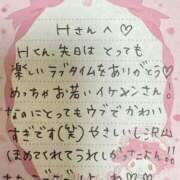 Hさんへ♡
Hくん、先日は とっても
楽しいラブタイムをありがとう♡
めっちゃ お若い イケメンさん
なのにとっても ウブで かわい
すぎです(笑) やさいししRM
ほめてくれて うれしかったよん!!